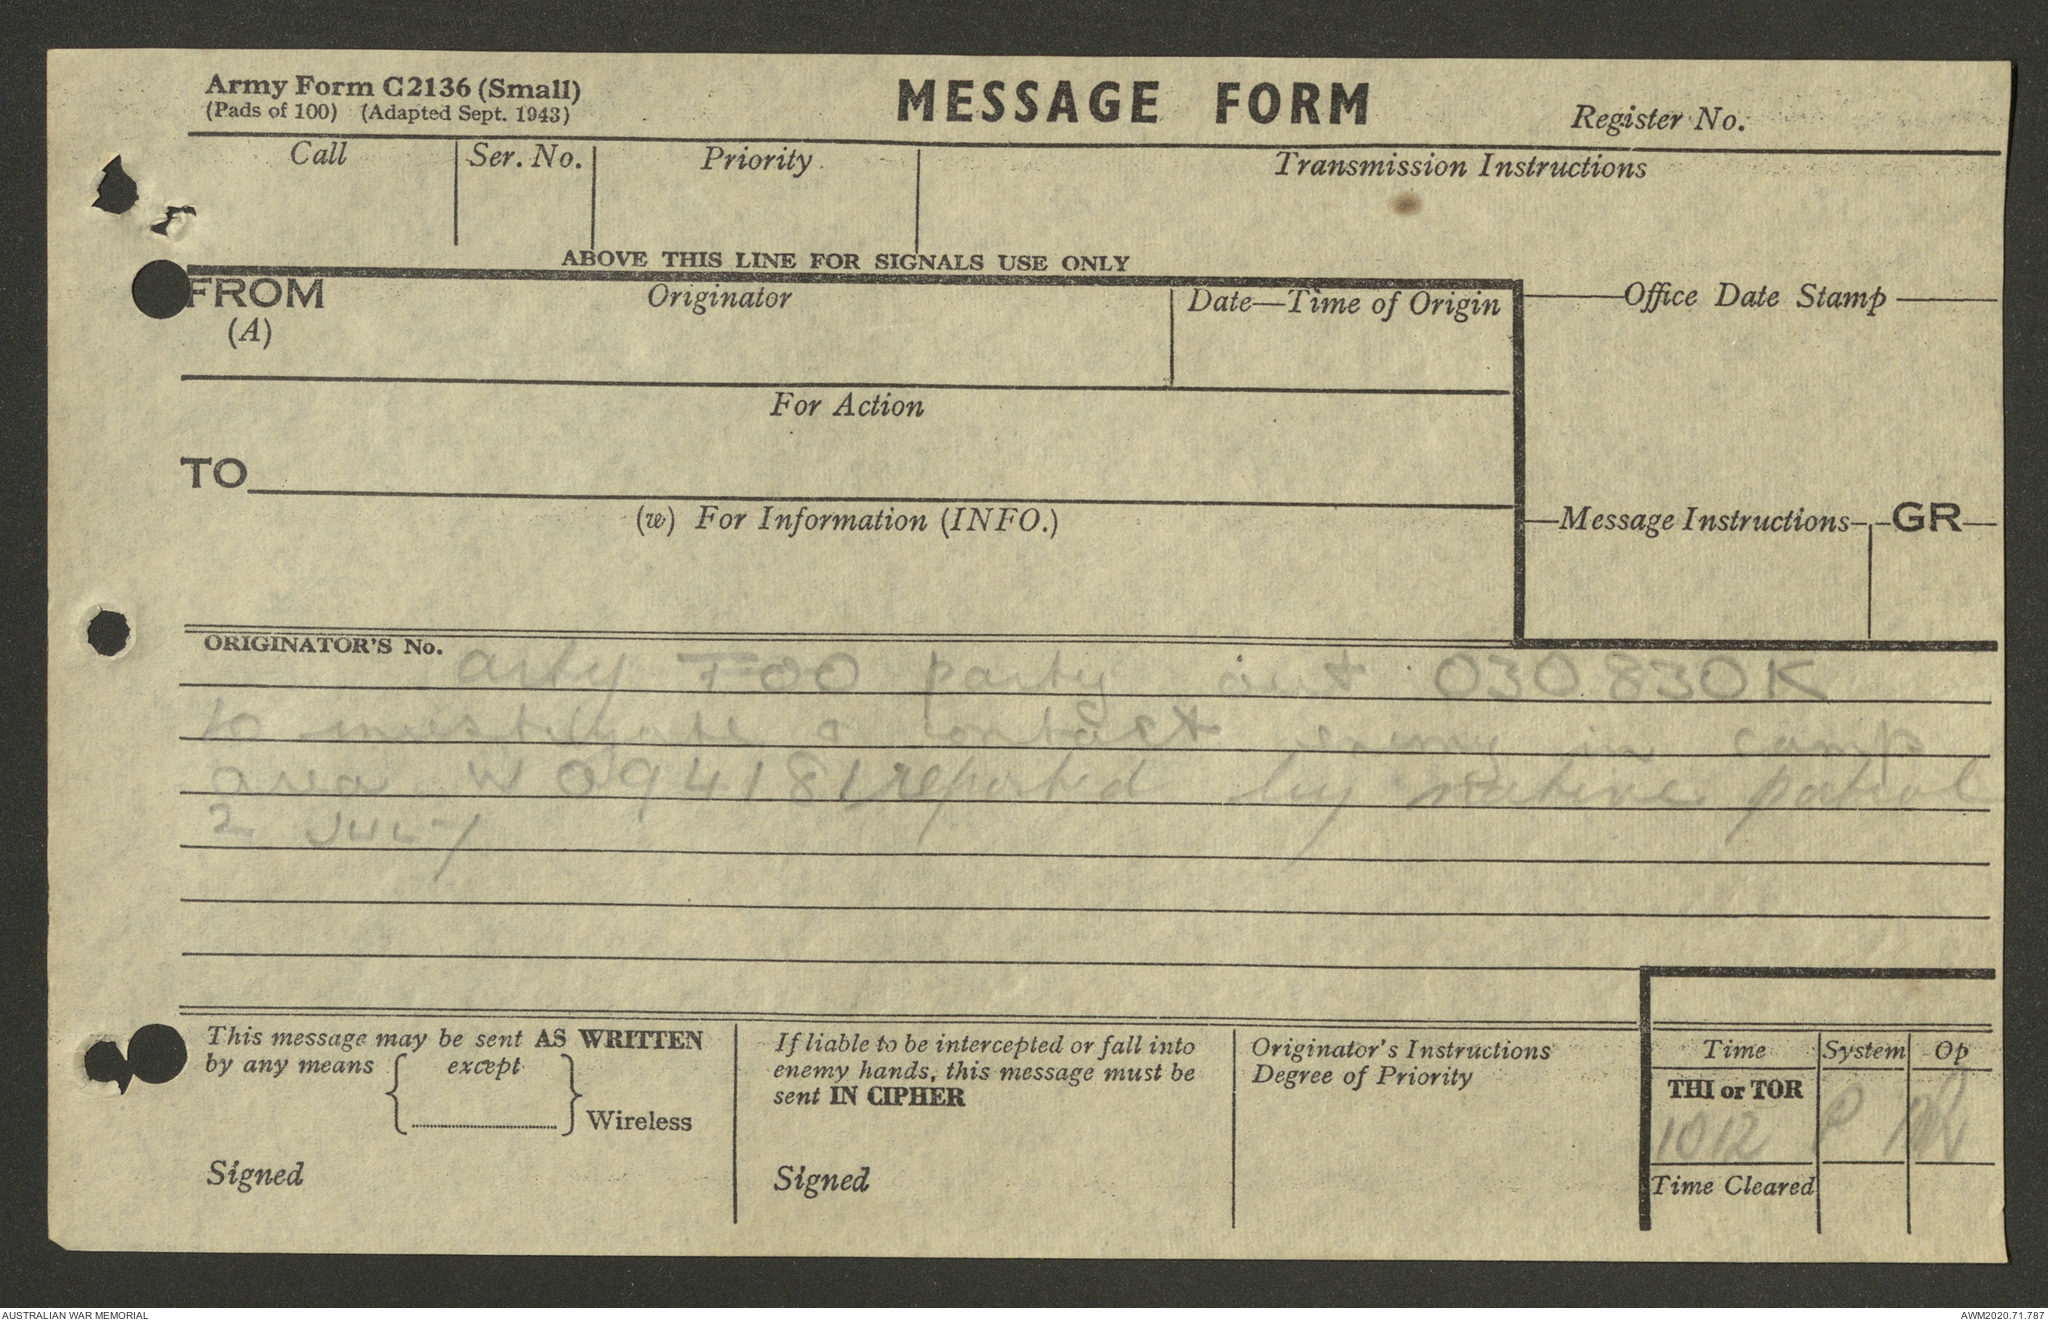 Army Form C2136 (Small)
(Pads of 100) (Adapted Sept. 1943)
MESSAGE FORM
Register No.
Call
Ser. No.
Priority
Transmission Instructions
ABOVE THIS LINE FOR SIGNALS USE ONLY
FROM
(A)
Originator
Date—Time of Origin
Office Date Stamp
For Action
TO
(w) For Information (INFO.)
Message Instructions
GR
ORIGINATOR'S No.
arty FOO party out 030830K
to investigate & contact enemy in camp
area W 094181 reported by native patrol
2 JULY
This message may be sent AS WRITTEN
by any means { except } Wireless
Signed
If liable to be intercepted or fall into
enemy hands, this message must be
sent IN CIPHER
Signed
Originator's Instructions
Degree of Priority
Time System Op
THI or TOR
1012 P
Time Cleared
AUSTRALIAN WAR MEMORIAL
AWM2020.71.787